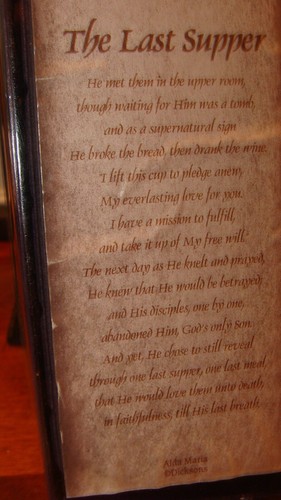 The Last Supper
He met them in the upper room,
though waiting for Him was a tomb,
and as a supernatural sign
He broke the bread, then drank the wine.
"I lift this cup to pledge anew,
My everlasting love for you.
I have a mission to fulfill,
and take it up of My free will."
The next day as He knelt and prayed,
He knew that He would be betrayed;
and His disciples, one by one,
abandoned Him, God's only Son.
And yet, He chose to still reveal
through one last supper, one last meal,
that He would love them unto death,
in faithfulness, till His last breath.
Maria
©Dicksons